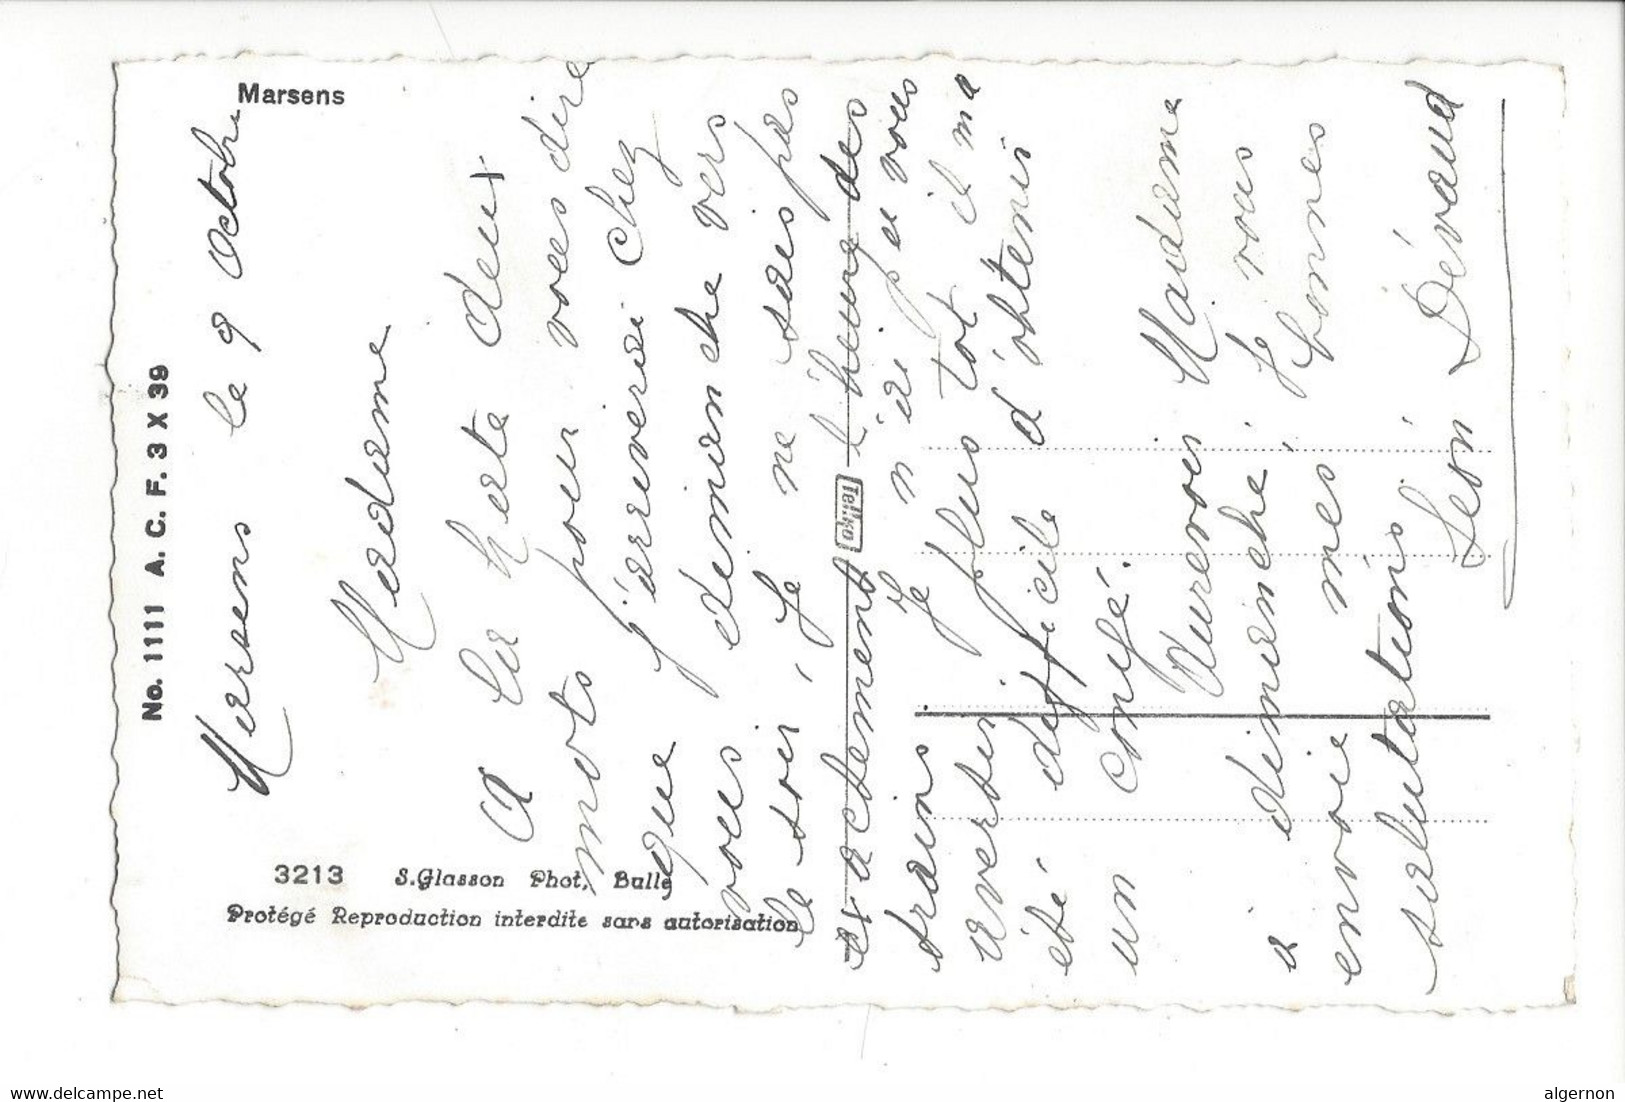 Marsens
No. 1111 A. C. F. 3 X 39
3213 S. Glasson Phot, Bulle
Protégé Reproduction interdite sans autorisation
Tellko
Marsens le 9 Octobre
Madame
A la hate deux
mots pour vous dire
que j'arriverai chez
vous dimanche vers
le soir, Je ne sais pas
exactement l'heure des
trains Je n'ai pu vous
avertir plus tot il ma
été difficile d'obtenir
un congé.
Aurevoir Madame
a dimanche, Je vous
envoie mes bonnes
salutations
Léon Dévaud
www.delcampe.net
algernon